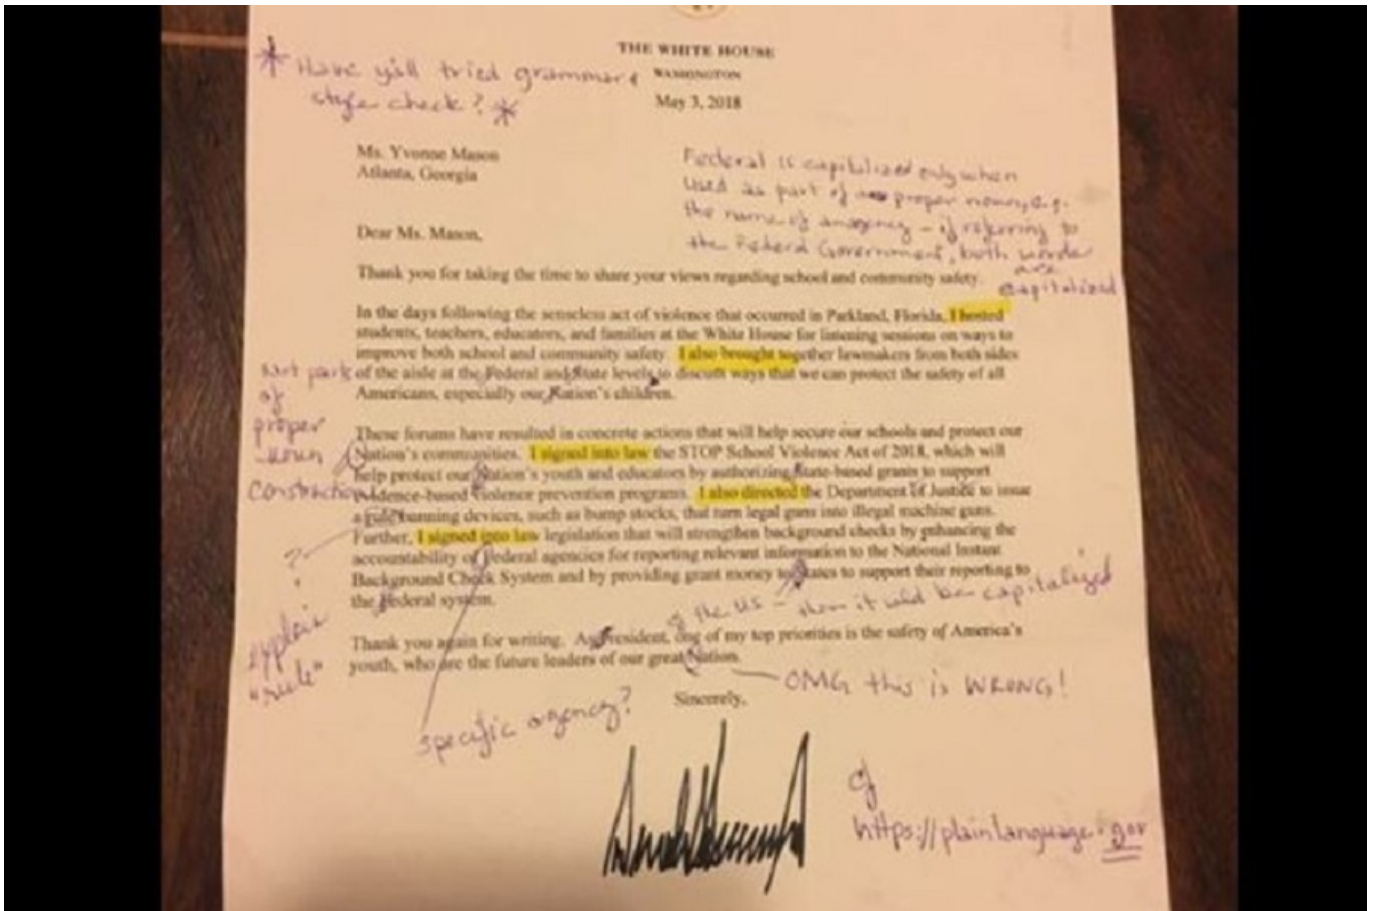 THE WHITE HOUSE
WASHINGTON
May 3, 2018
* Have y'all tried grammar &
style check? *
Ms. Yvonne Mason
Atlanta, Georgia
Federal is capitalized only when
used as part of proper nouns, e.g.
the name of an agency - if referring to
the Federal Government, both words
are
capitalized
Dear Ms. Mason,
Thank you for taking the time to share your views regarding school and community safety.
In the days following the senseless act of violence that occurred in Parkland, Florida, I hosted
students, teachers, educators, and families at the White House for listening sessions on ways to
improve both school and community safety. I also brought together lawmakers from both sides
of the aisle at the Federal and State levels to discuss ways that we can protect the safety of all
Americans, especially our Nation's children.
part
of
proper
noun
construction
These forums have resulted in concrete actions that will help secure our schools and protect our
Nation's communities. I signed into law the STOP School Violence Act of 2018, which will
help protect our Nation's youth and educators by authorizing State-based grants to support
evidence-based violence prevention programs. I also directed the Department of Justice to issue
a rule banning devices, such as bump stocks, that turn legal guns into illegal machine guns.
Further, I signed into law legislation that will strengthen background checks by enhancing the
accountability of Federal agencies for reporting relevant information to the National Instant
Background Check System and by providing grant money to States to support their reporting to
the Federal system.
?
explain
"rule"
of the US - then it would be capitalized
Thank you again for writing. As President, one of my top priorities is the safety of America's
youth, who are the future leaders of our great Nation.
OMG this is WRONG!
Sincerely,
specific agency?
cf
https://plainlanguage.gov